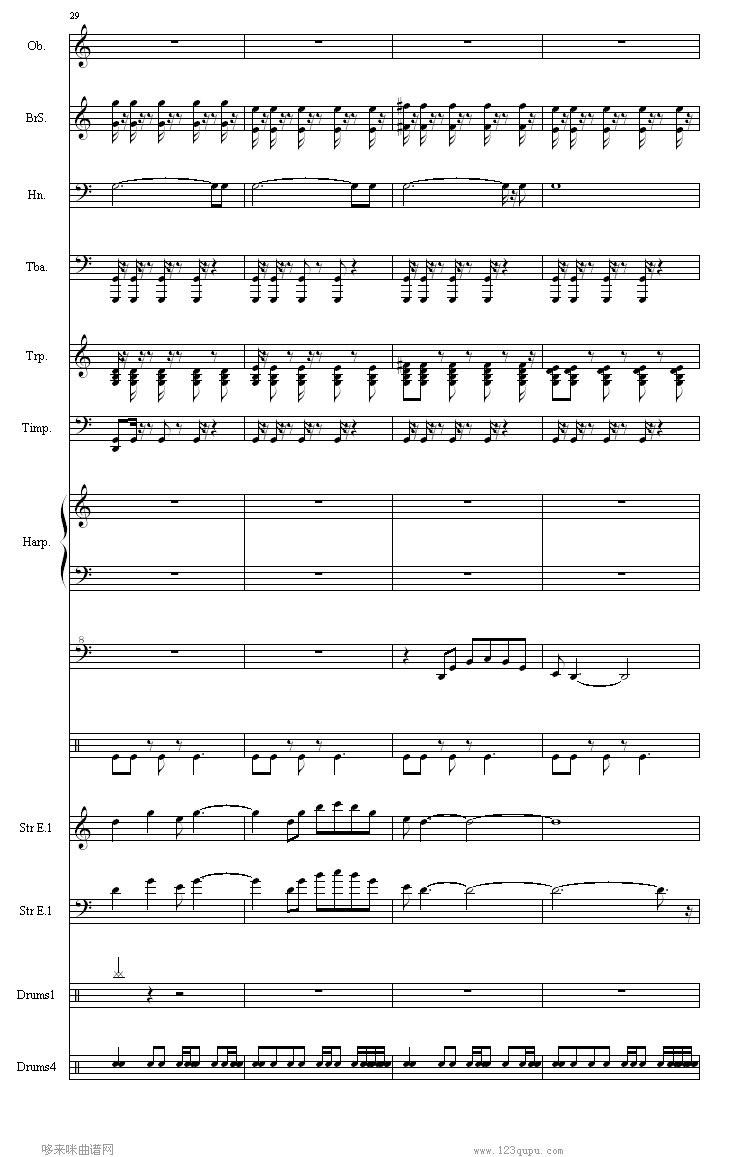 29
Ob.
BrS.
Hn.
Tba.
Trp.
Timp.
Harp.
8
Str E.1
Str E.1
Drums1
Drums4
哆来咪曲谱网
www.123qupu.com